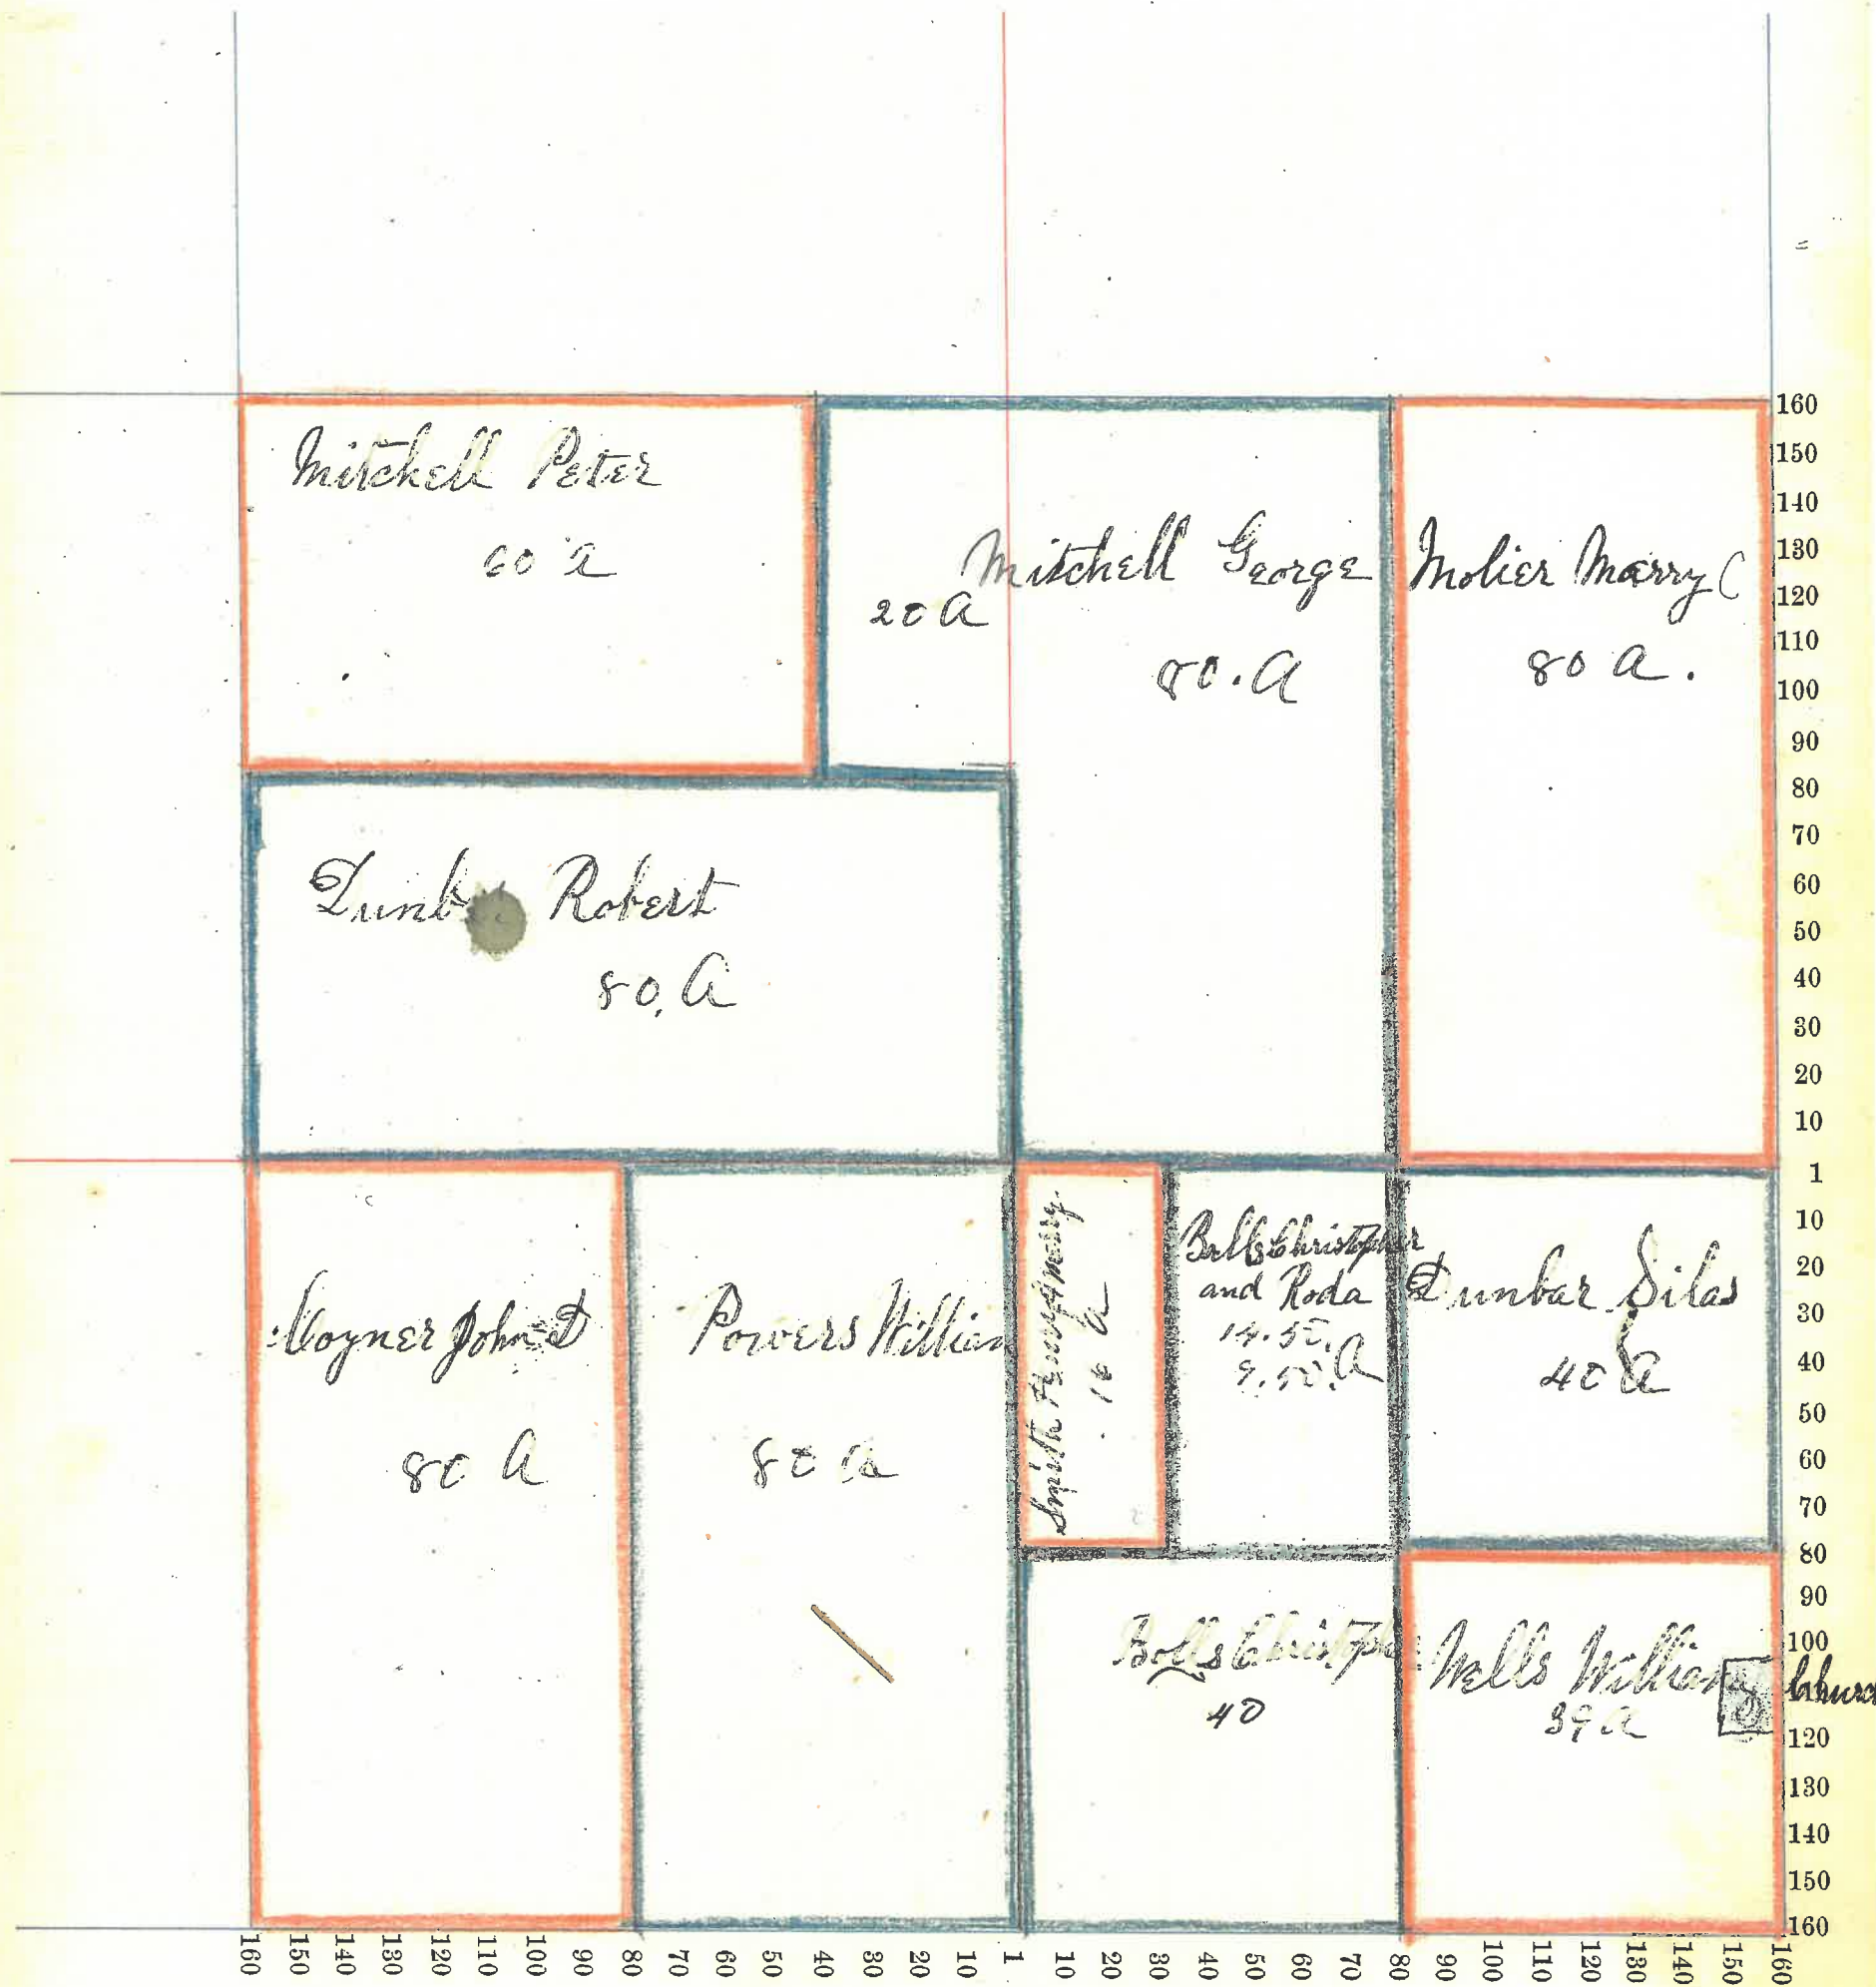 Mitchell Peter
60 A
Mitchell George
20 A
80. A
Molier Marry C
80 A.
Robert
80, A
Moyner John D
80 A
Powers William
80 A
Smith
16 A
Bolls Christopher
and Roda
14.50.
9.50. A
Dunbar Silas
40 A
Bolls Christopher
40
Wells William
39 A
160
150
140
130
120
110
100
90
80
70
60
50
40
30
20
10
1
10
20
30
40
50
60
70
80
90
100
120
130
140
150
160
160
150
140
130
120
110
100
90
80
70
60
50
40
30
20
10
1
10
20
30
40
50
60
70
80
90
100
110
120
130
140
150
160